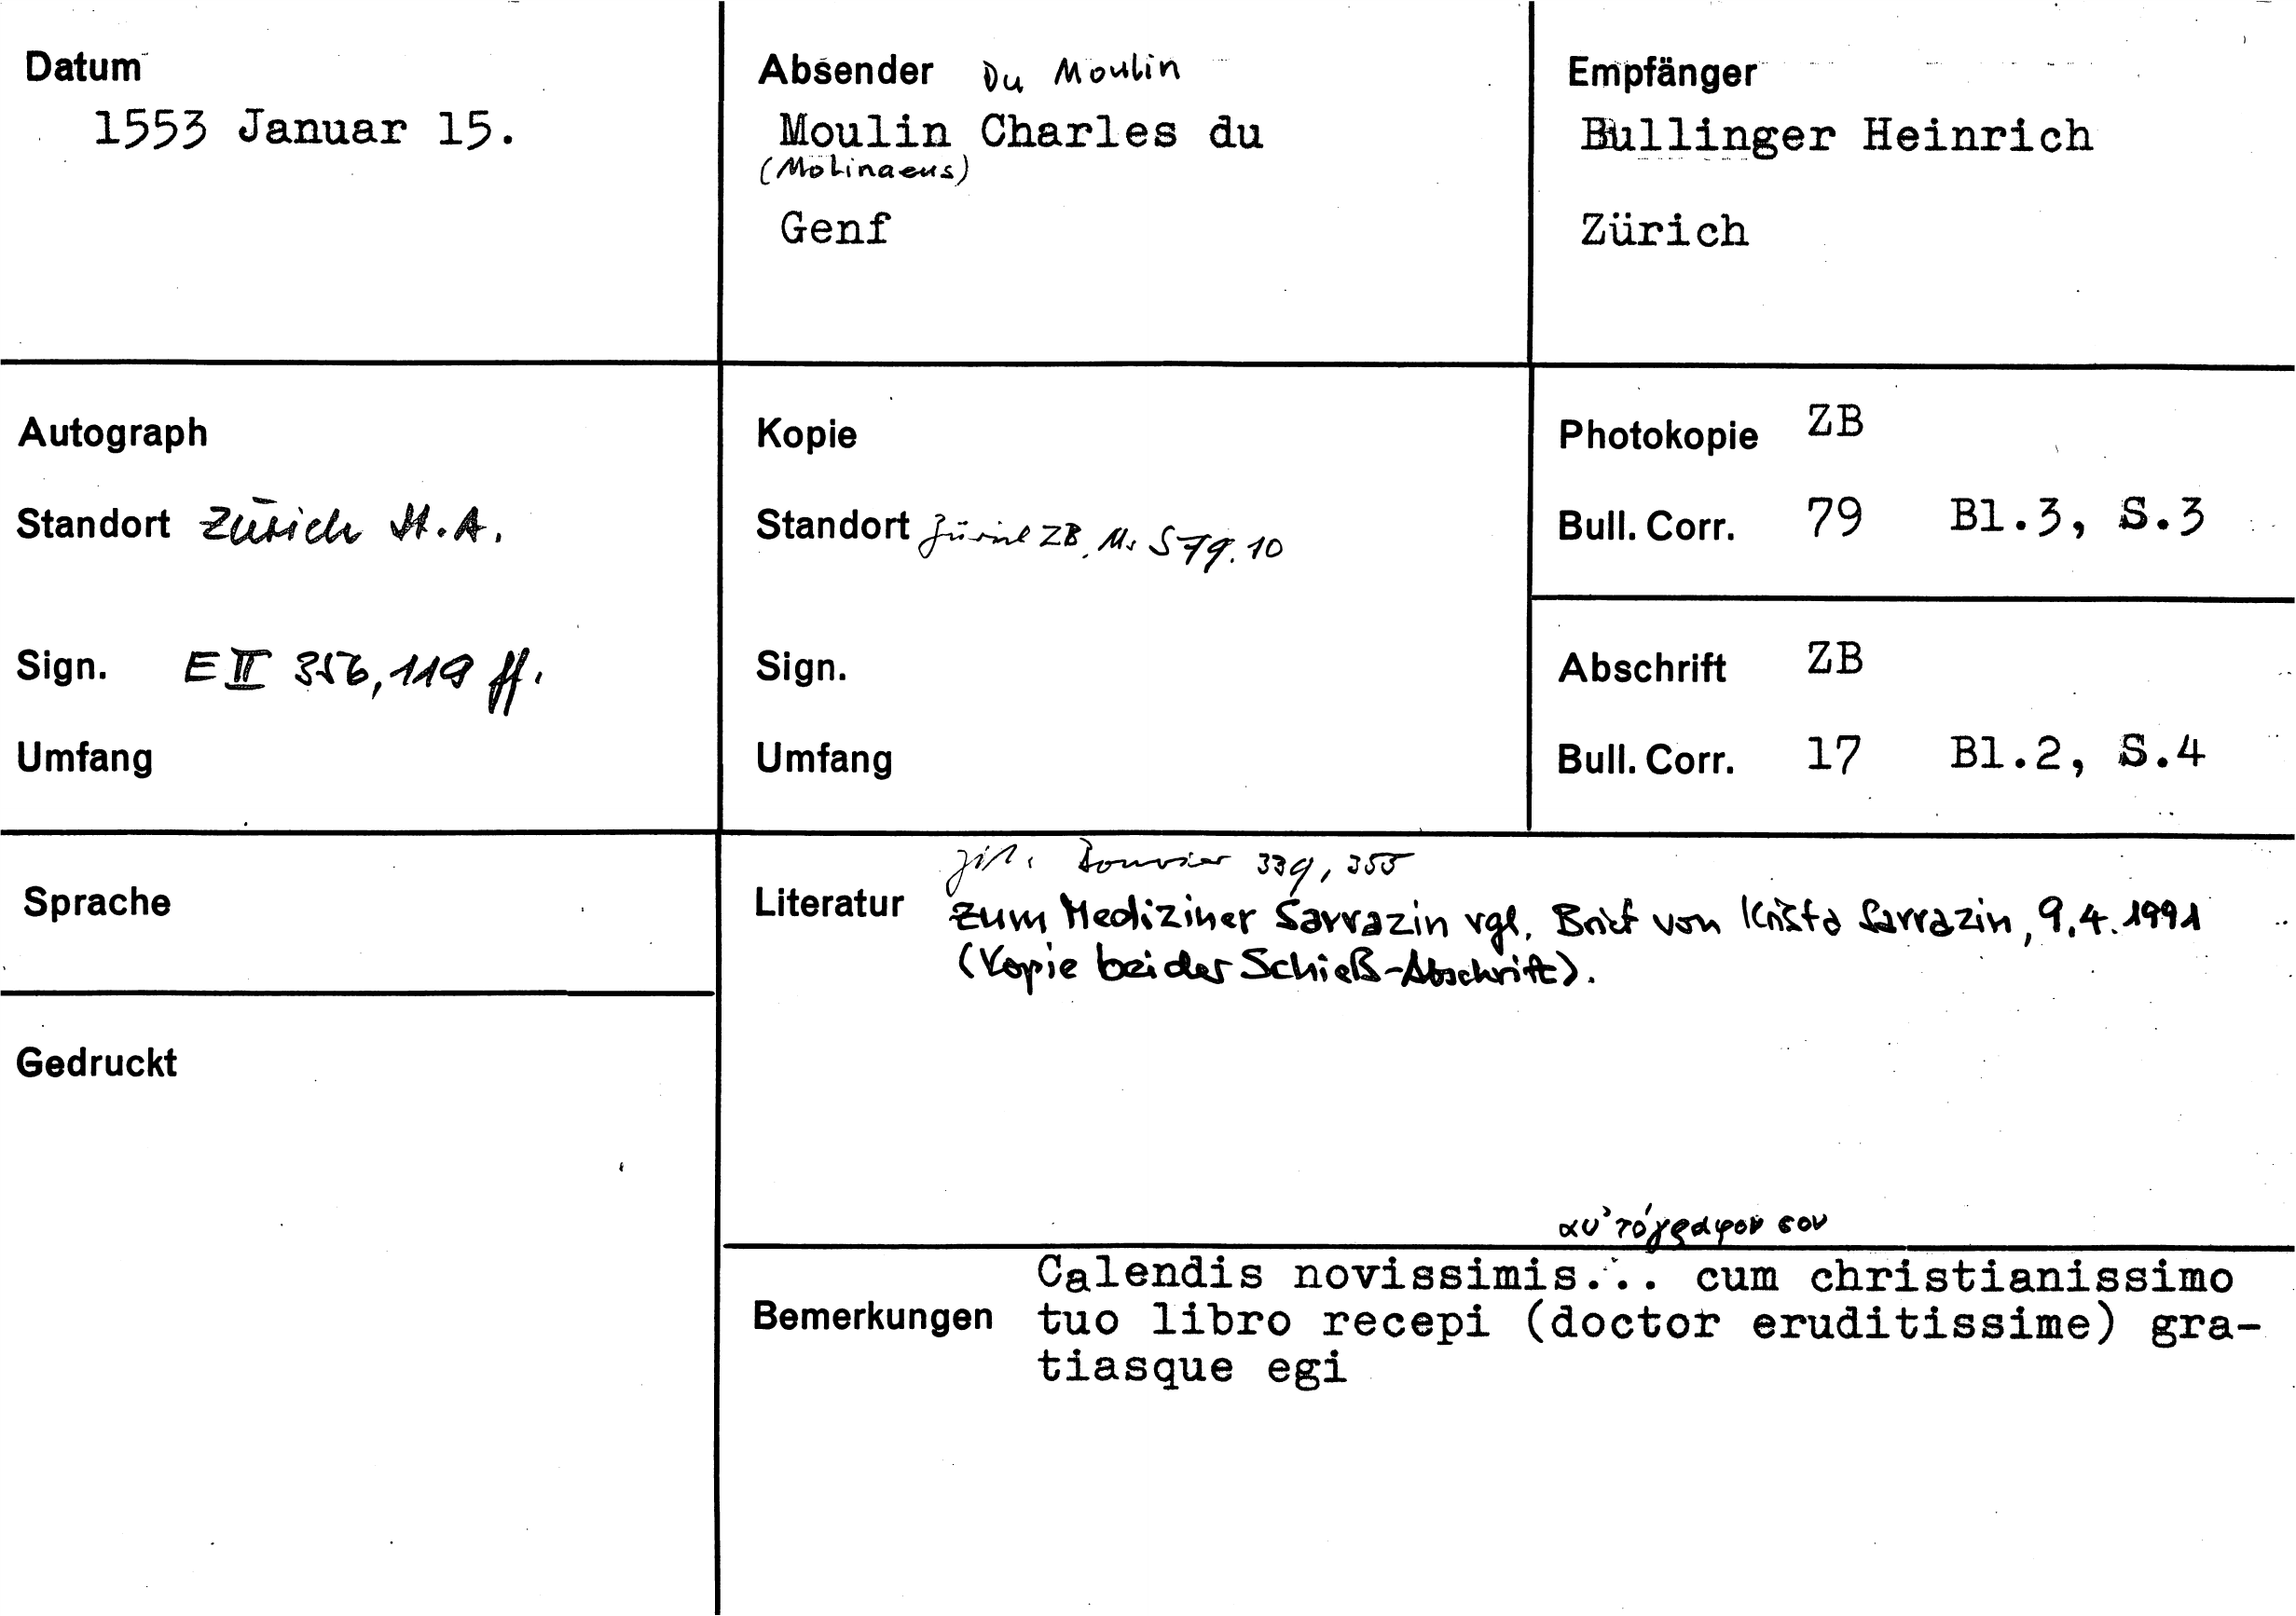 Datum
1553 Januar 15.
Absender Du Moulin
Moulin Charles du
(Molinaeus)
Genf
Empfänger
Bullinger Heinrich
Zürich
Autograph
Standort Zürich St.A.
Sign. E II 356, 119 ff.
Umfang
Kopie
Standort Zürich ZB, Ms S 79. 10
Sign.
Umfang
Photokopie ZB
Bull. Corr. 79 Bl.3, S.3
Abschrift ZB
Bull. Corr. 17 Bl.2, S.4
Sprache
Gedruckt
zit. Bouvier 339, 355
Literatur zum Mediziner Sarrazin vgl. Brief von Krista Sarrazin, 9.4.1991
(Kopie bei der Schieß-Abschrift).
αὐτόγραφον σου
Calendis novissimis... cum christianissimo
Bemerkungen tuo libro recepi (doctor eruditissime) gra-
tiasque egi